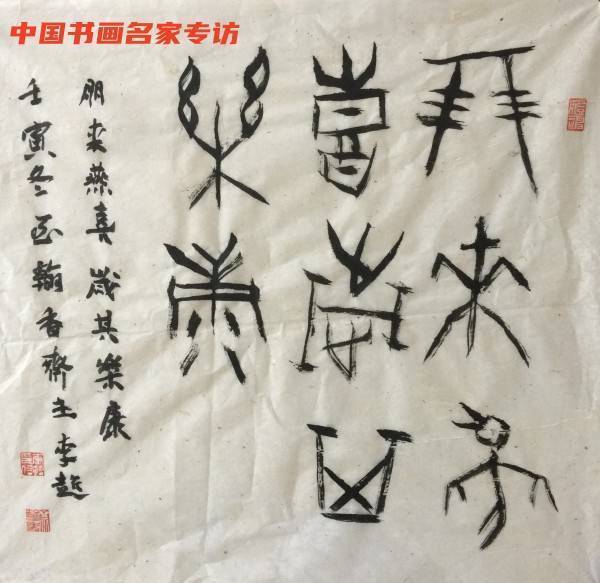 中国书画名家专访
朋来燕
喜岁其
乐康
朋来燕喜岁其樂康
壬寅冬 翰香齋主李越